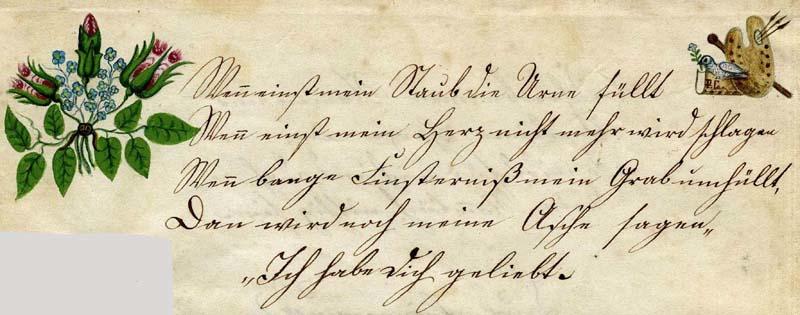 Wenn einst mein Staub die Urne füllt
Wenn einst mein Herz nicht mehr wird schlagen
Wenn bange Finsterniß mein Grab umhüllt,
Dan wird noch meine Asche sagen„
„Ich habe Dich geliebt.